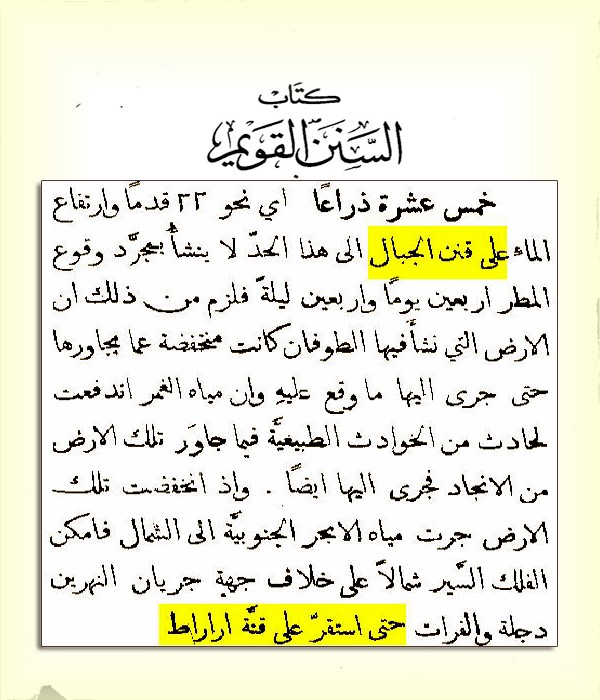 كتاب
السنن القويم
خمس عشرة ذراعًا اي نحو ٢٢ قدمًا وارتفاع
الماء على قنن الجبال الى هذا الحدّ لا ينشأ بمجرَّد وقوع
المطر اربعين يومًا واربعين ليلةً فلزم من ذلك ان
الارض التي نشأ فيها الطوفان كانت منخفضة عما يجاورها
حتى جرى اليها ما وقع عليهِ وان مياه الغمر اندفعت
لحادث من الحوادث الطبيعيَّة فيما جاوَر تلك الارض
من الانجاد فجرى اليها ايضًا . واذ انخفضت تلك
الارض جرت مياه الابحر الجنوبيَّة الى الشمال فامكن
الفلك السَّير شمالاً على خلاف جهة جريان النهرين
دجلة والفرات حتى استقرّ على قنَّة اراراط